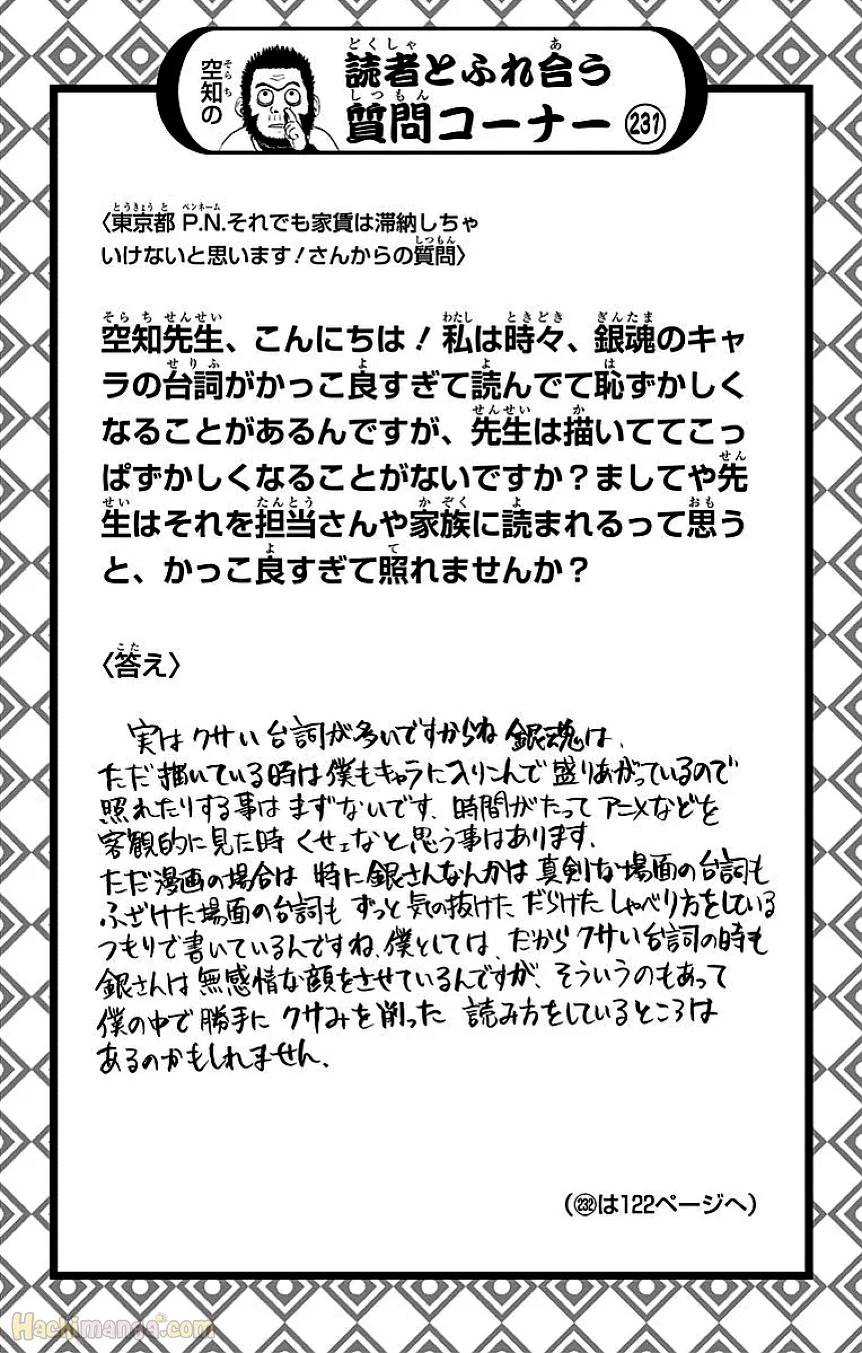 空知の
読者とふれ合う
質問コーナー 231
〈東京都 P.N.それでも家賃は滞納しちゃ
いけないと思います!さんからの質問〉
空知先生、こんにちは!私は時々、銀魂のキャ
ラの台詞がかっこ良すぎて読んでて恥ずかしく
なることがあるんですが、先生は描いててこっ
ぱずかしくなることがないですか?ましてや先
生はそれを担当さんや家族に読まれるって思う
と、かっこ良すぎて照れませんか?
〈答え〉
実はクサい台詞が多いですからね銀魂は、
ただ描いている時は僕もキャラに入りこんで盛りあがっているので
照れたりする事はまずないです、時間がたってアニメなどを
客観的に見た時くせェなと思う事はあります、
ただ漫画の場合は特に銀さんなんかは真剣な場面の台詞も
ふざけた場面の台詞もずっと気の抜けただらけたしゃべり方をしている
つもりで書いているんですね、僕としては、だからクサい台詞の時も
銀さんは無感情な顔をさせているんですが、そういうのもあって
僕の中で勝手にクサみを削った読み方をしているところは
あるのかもしれません、
(232は122ページへ)
Hachimanga.com